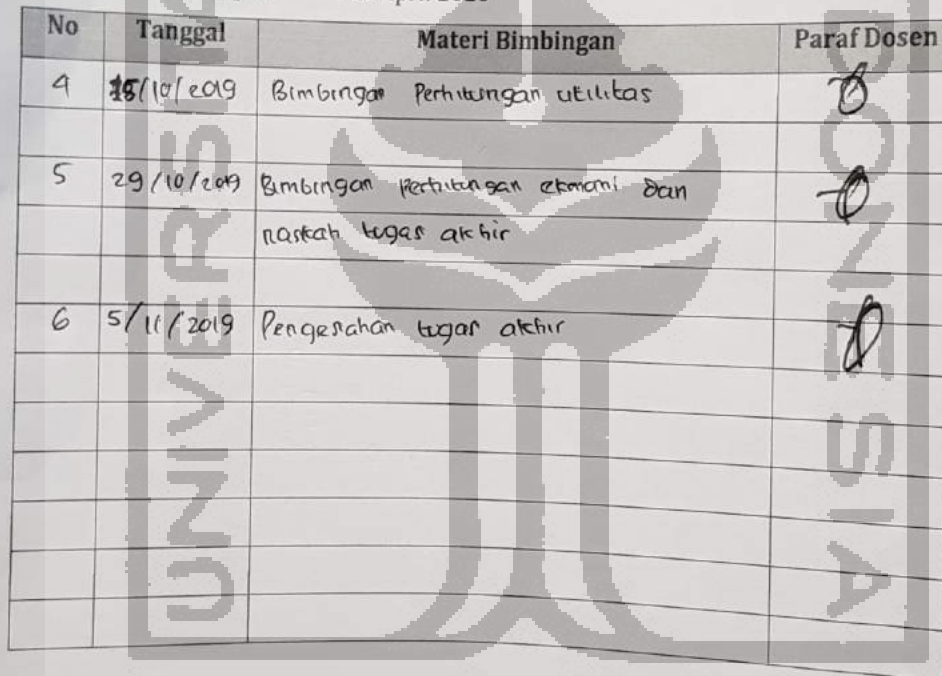 No Tanggal Materi Bimbingan Paraf Dosen
4 15/10/2019 Bimbingan Perhitungan utilitas
5 29/10/2019 Bimbingan Perhitungan ekonomi dan
naskah tugas akhir
6 5/11/2019 Pengesahan tugas akhir
UNIVERSITA
ONESIA